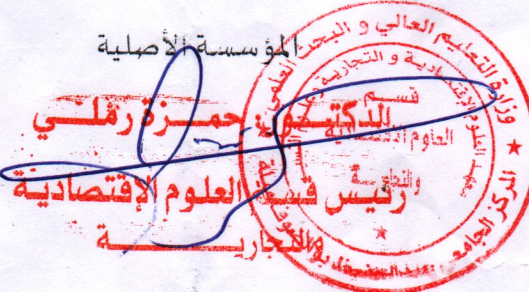 المؤسسة الأصلية
الدكتور: حمزة رملي
رئيس قسم العلوم الإقتصادية
والتجارية
وزارة التعليم العالي و البحث العلمي
المركز الجامعي
قسم
العلوم الاقتصادية
والتجارية